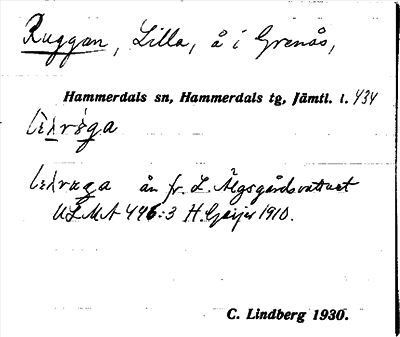 Ruggan, Lilla, å i Grenås,
Hammerdals sn, Hammerdals tg, Jämtl. l. 434
ån fr. L. Älgsgårdsvattnet
ULMA 446:3 H. Geijer 1910.
C. Lindberg 1930.